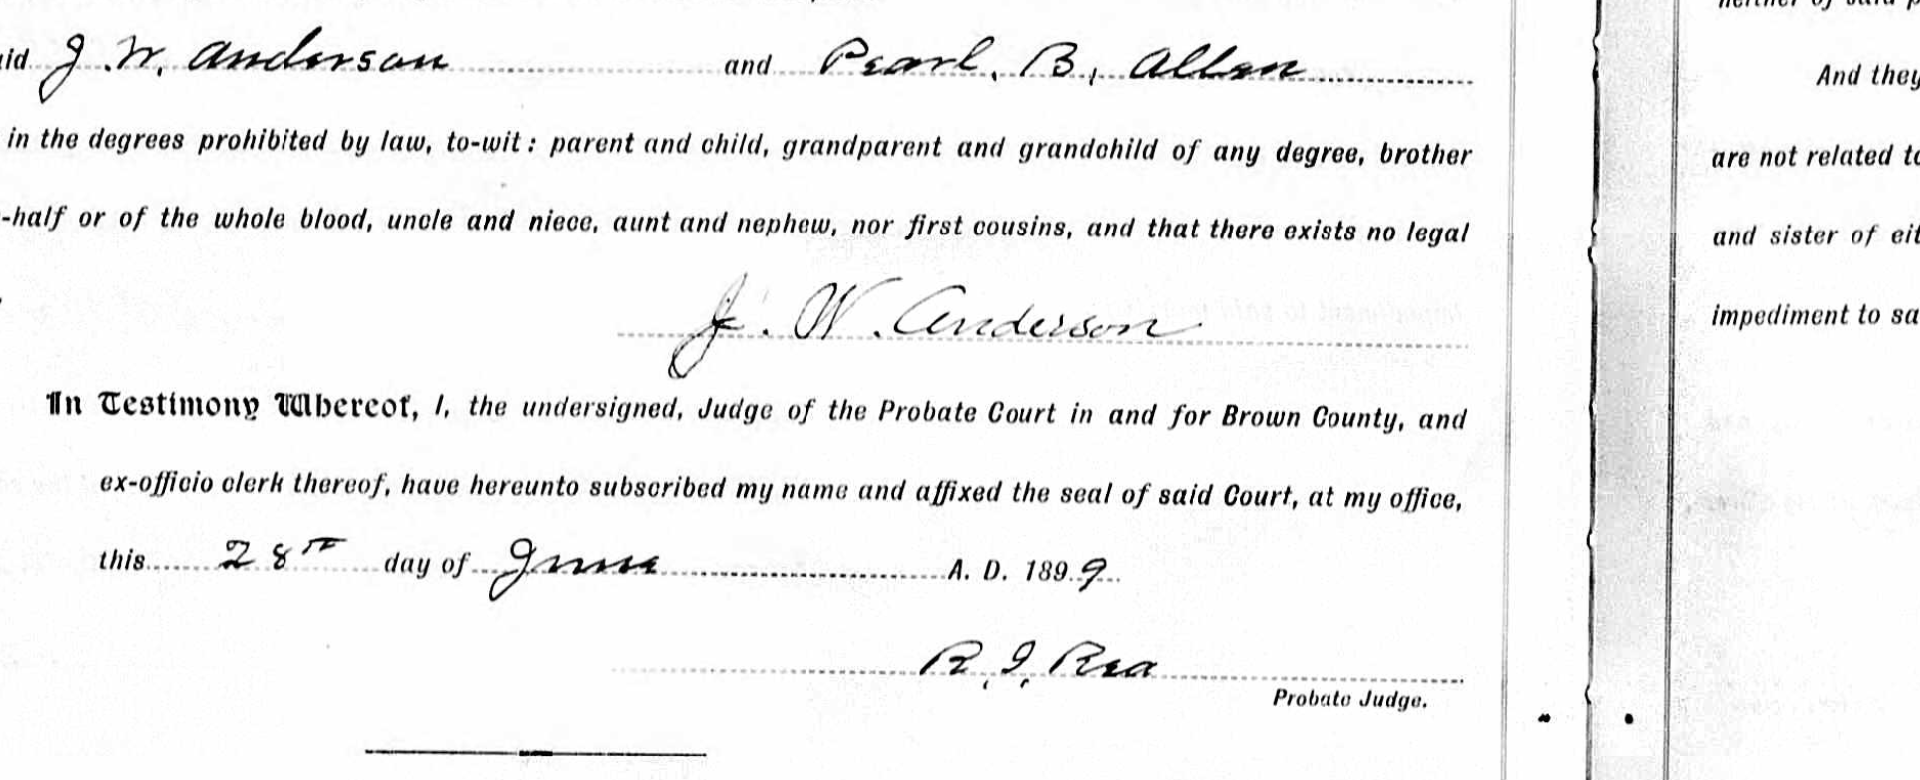 id J. W. Anderson and Pearl. B, Allen
in the degrees prohibited by law, to-wit: parent and child, grandparent and grandchild of any degree, brother
-half or of the whole blood, uncle and niece, aunt and nephew, nor first cousins, and that there exists no legal
J. W. Anderson
In Testimony Whereof, I, the undersigned, Judge of the Probate Court in and for Brown County, and
ex-officio clerk thereof, have hereunto subscribed my name and affixed the seal of said Court, at my office,
this 28th day of June A. D. 1899
R. I. Rea
Probate Judge.
And they
are not related to
and sister of eit
impediment to sa